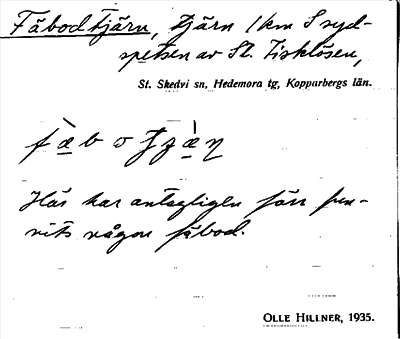 Fäbodtjärn, tjärn 1 km S syd-
spetsen av St. Fisklösen,
St. Skedvi sn, Hedemora tg, Kopparbergs län.
Här har antagligen förr fun-
nits någon fäbod.
OLLE HILLNER, 1935.